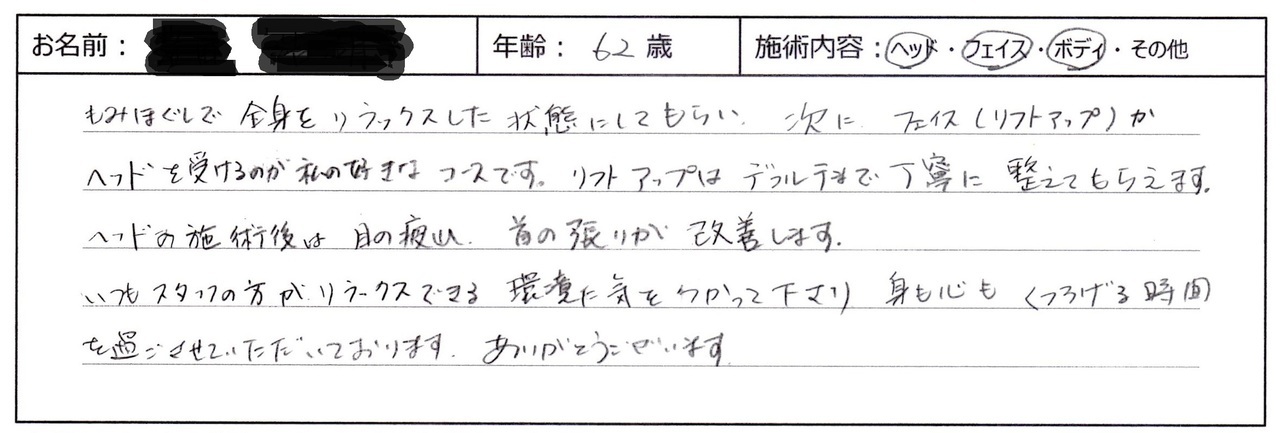 お名前： 年齢： 62 歳 施術内容：ヘッド・フェイス・ボディ・その他
もみほぐしで 全身をリラックスした 状態にしてもらい 次に フェイス（リフトアップ）か
ヘッドを受けるのが私の好きな コースです。リフトアップは デコルテまで丁寧に 整えてもらえます。
ヘッドの施術後は 目の疲れ 首の張りが 改善します。
いつもスタッフの方がリラックスできる 環境に気をつかって下さり 身も心も くつろげる時間
を過ごさせていただいております。ありがとうございます